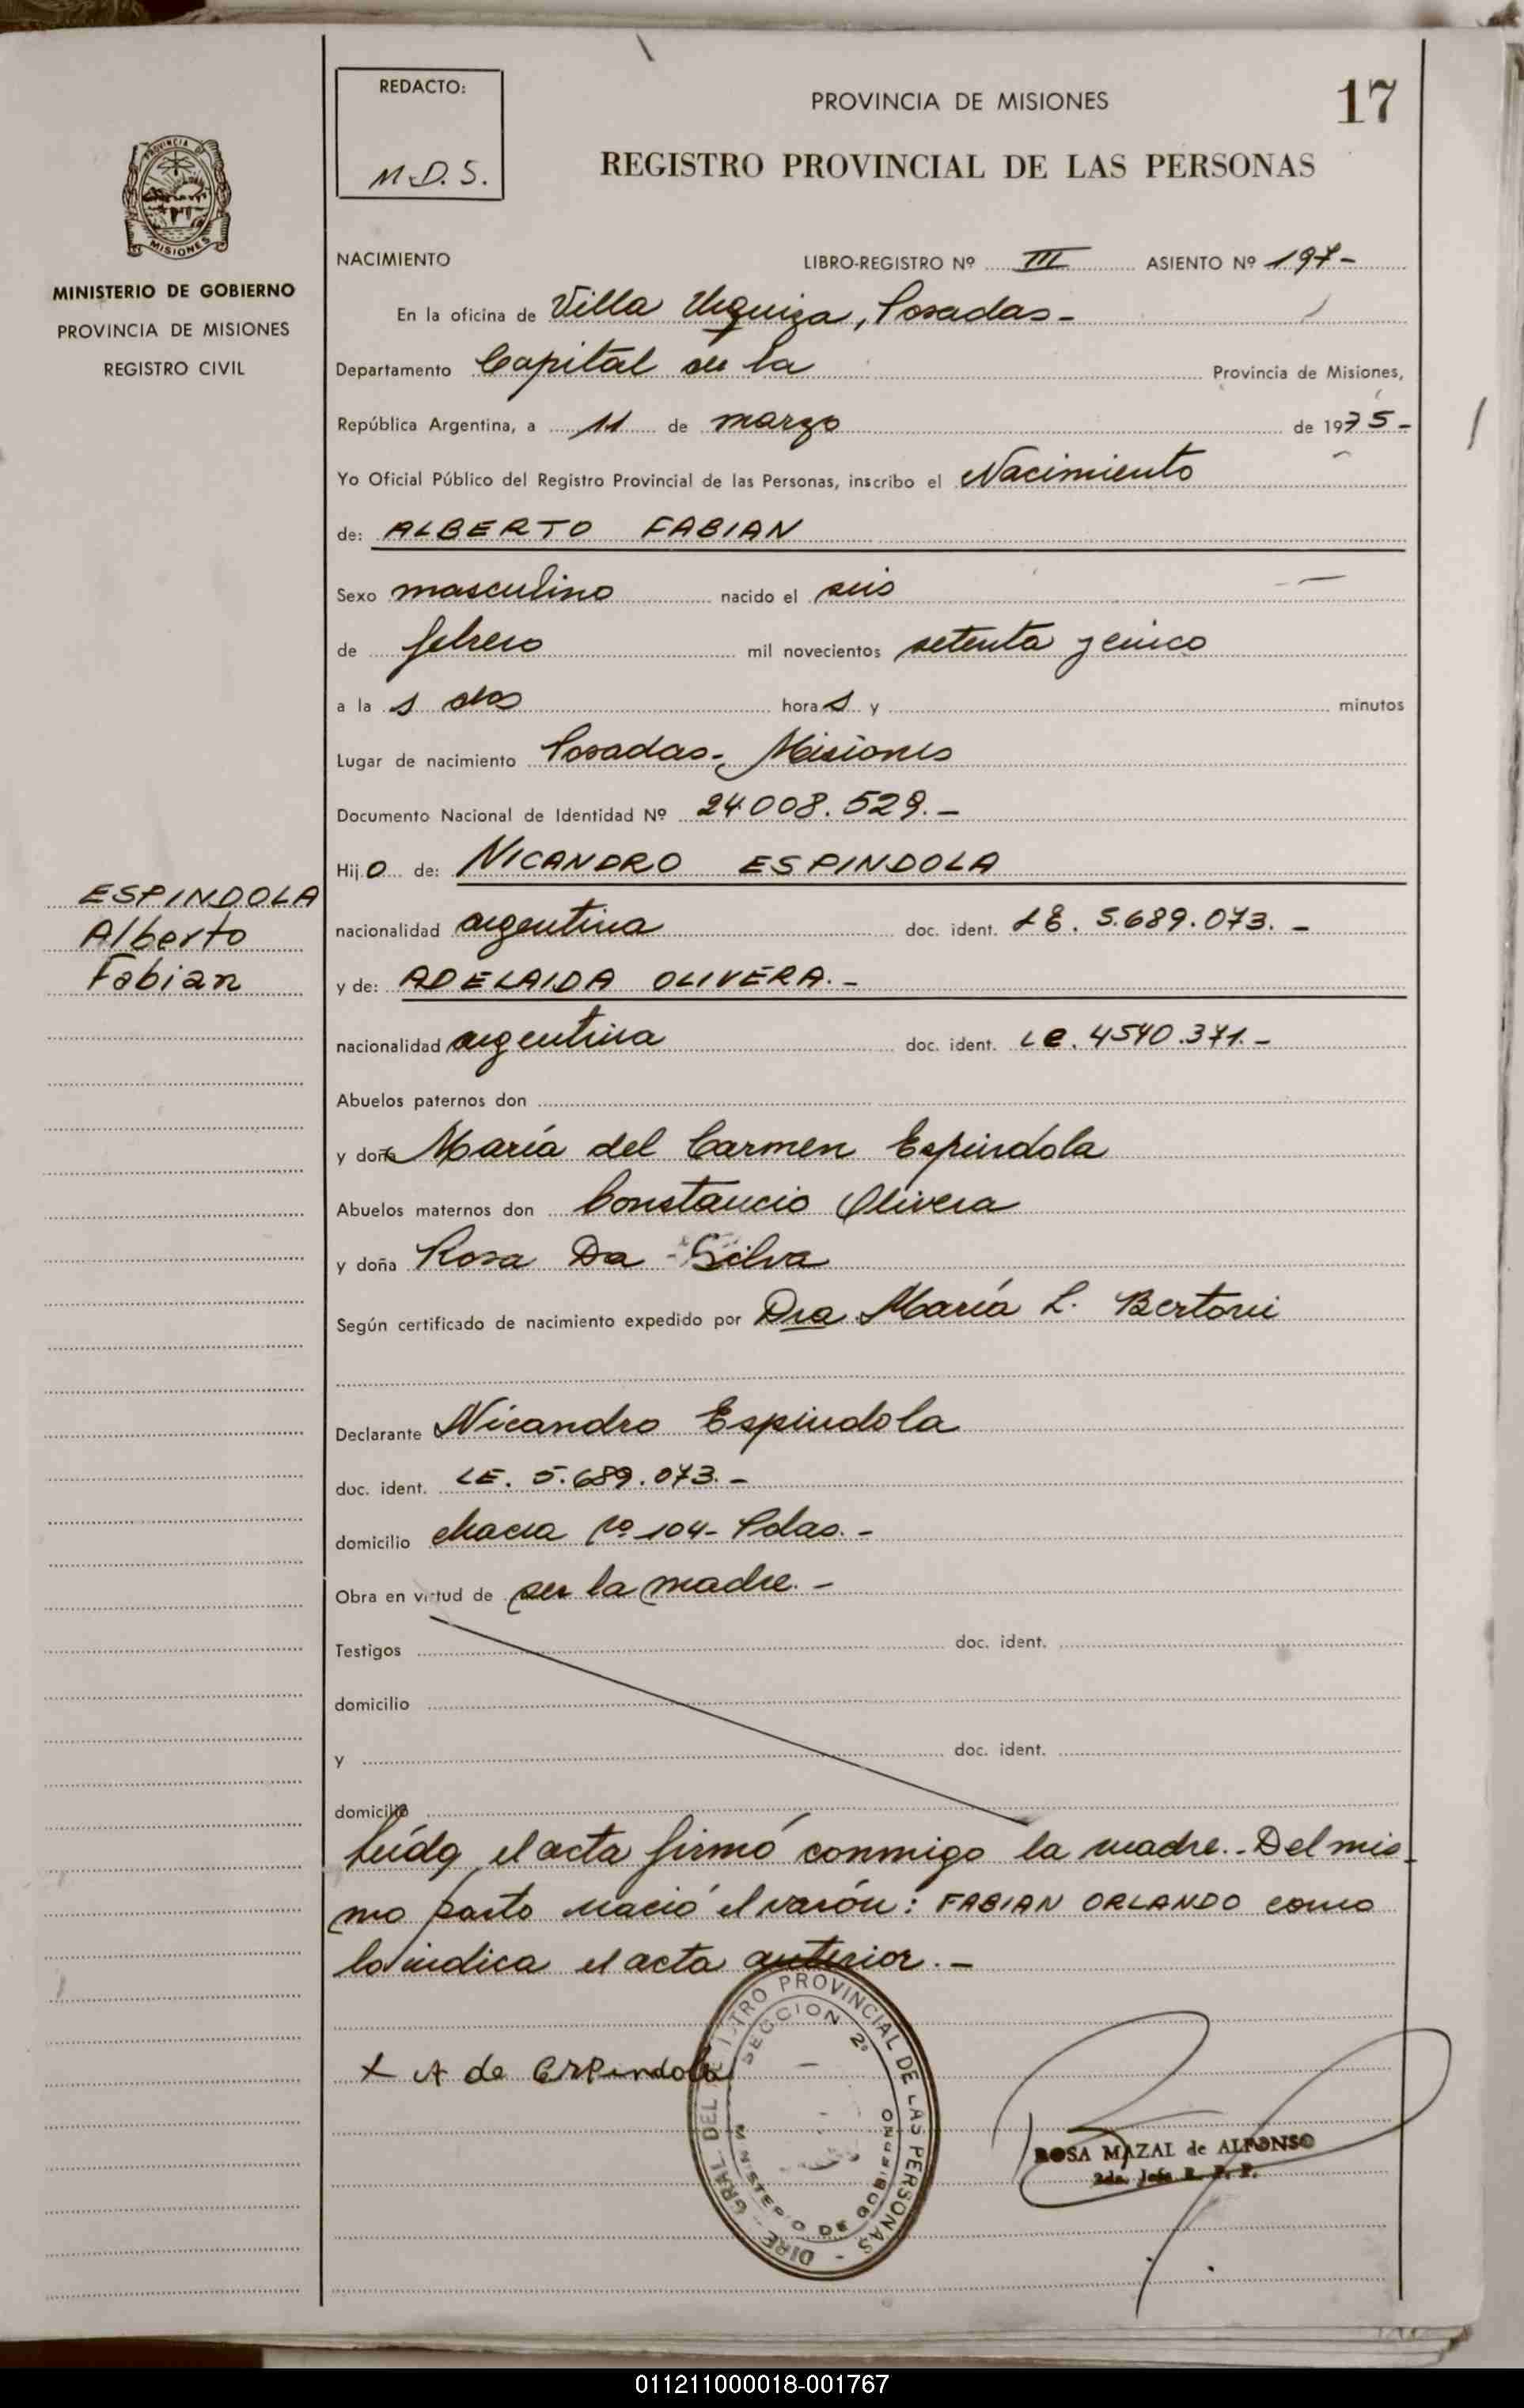 REDACTO:
M.D.S.
PROVINCIA DE MISIONES
17
REGISTRO PROVINCIAL DE LAS PERSONAS
PROVINCIA DE
MISIONES
MINISTERIO DE GOBIERNO
PROVINCIA DE MISIONES
REGISTRO CIVIL
NACIMIENTO LIBRO-REGISTRO Nº III ASIENTO Nº 197-
En la oficina de Villa Urquiza, Posadas-
Departamento Capital de la Provincia de Misiones,
República Argentina, a 11 de marzo de 1975-
Yo Oficial Público del Registro Provincial de las Personas, inscribo el Nacimiento
de: ALBERTO FABIAN
Sexo masculino nacido el seis
de febrero mil novecientos setenta y cinco
a la s dos hora s y minutos
Lugar de nacimiento Posadas- Misiones
Documento Nacional de Identidad Nº 24.008.529.-
Hij o de: NICANDRO ESPINDOLA
ESPINDOLA
Alberto
Fabian
nacionalidad argentina doc. ident. LE. 5.689.073.-
y de: ADELAIDA OLIVERA.-
nacionalidad argentina doc. ident. LC. 4540.371.-
Abuelos paternos don
y doña María del Carmen Espindola
Abuelos maternos don Constancio Olivera
y doña Rosa Da Silva
Según certificado de nacimiento expedido por Dra María L. Bertoni
Declarante Nicandro Espindola
doc. ident. LE. 5.689.073.-
domicilio chacra Nº 104- Pdas.-
Obra en virtud de ser la madre.-
Testigos doc. ident.
domicilio
y doc. ident.
domicilio
leída el acta firmó conmigo la madre.- Del mis
mo parto nació el varón: FABIAN ORLANDO como
lo indica el acta anterior.-
x A de Espindola
DIRE GRAL DEL REGISTRO PROVINCIAL DE LAS PERSONAS -
SECCION 2º
MINISTERIO DE GOBIERNO
ROSA MAZAL de ALFONSO
2da. Jefe R. P. P.
011211000018-001767